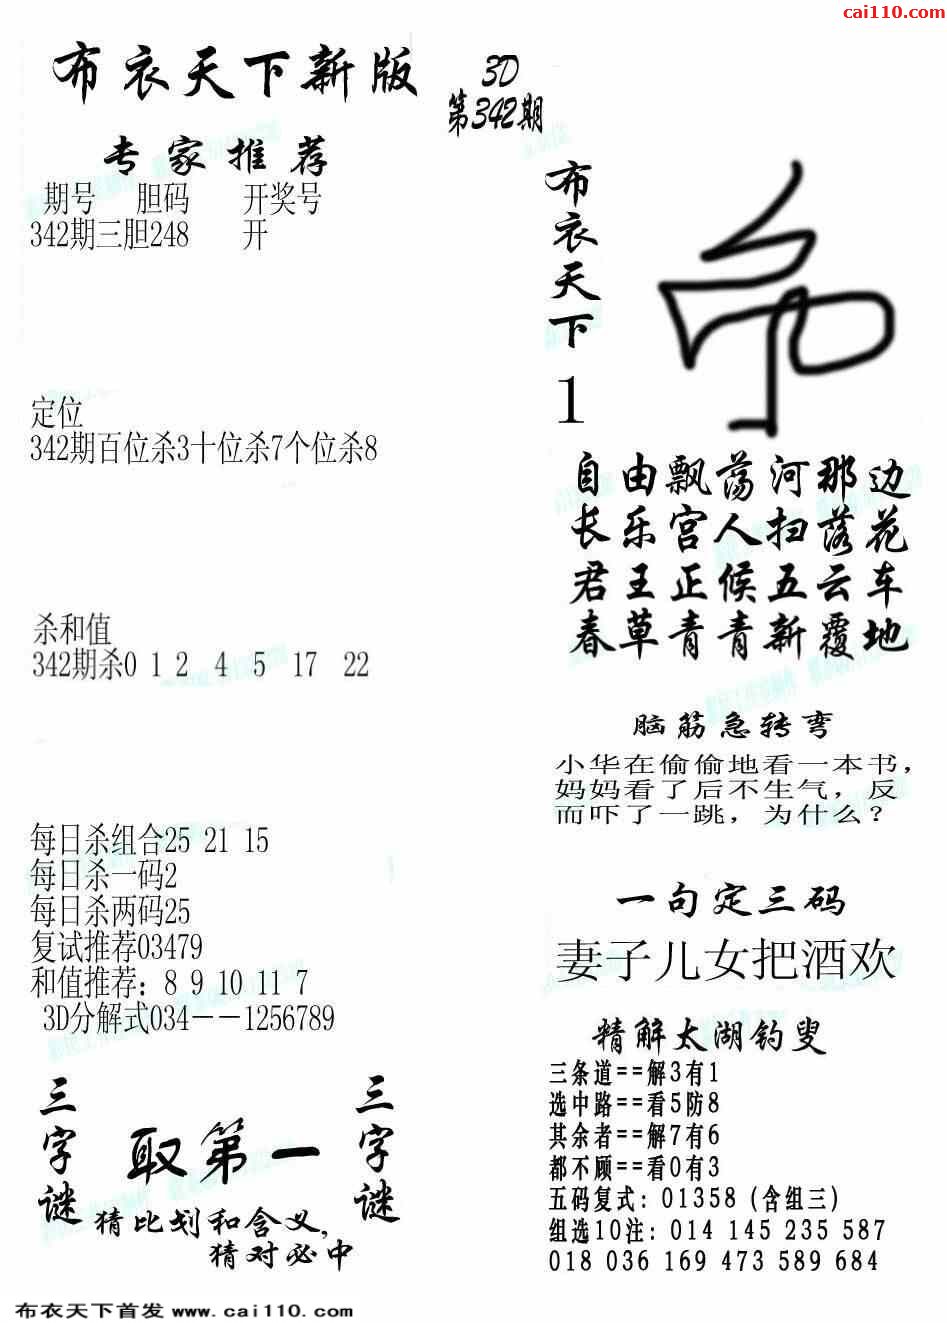 cai110.com
布衣天下新版
3D
第342期
专家推荐
期号 胆码 开奖号
342期三胆248 开
定位
342期百位杀3十位杀7个位杀8
杀和值
342期杀0 1 2 4 5 17 22
每日杀组合25 21 15
每日杀一码2
每日杀两码25
复试推荐03479
和值推荐：8 9 10 11 7
3D分解式034——1256789
三字谜
取第一
三字谜
猜比划和含义，
猜对必中
布衣天下
1
自由飘荡河那边
长乐宫人扫落花
君王正候五云车
春草青青新覆地
脑筋急转弯
小华在偷偷地看一本书，
妈妈看了后不生气，反
而吓了一跳，为什么？
一句定三码
妻子儿女把酒欢
精解太湖钓叟
三条道==解3有1
选中路==看5防8
其余者==解7有6
都不顾==看0有3
五码复式：01358（含组三）
组选10注：014 145 235 587
018 036 169 473 589 684
布衣天下首发 www.cai110.com